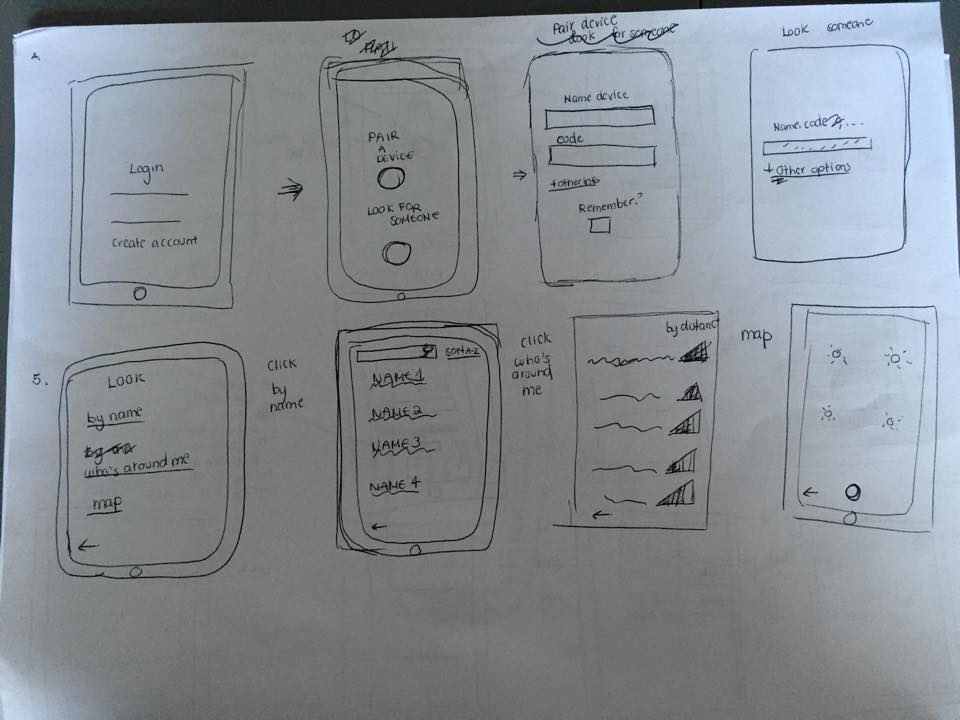 4.
Login
Create account
PAIR
A
DEVICE
LOOK FOR
SOMEONE
Pair device
Look for someone
Name device
code
+other info
Remember?
Look someone
Name, code, ...
+ Other options
5.
LOOK
by name
who's around me
map
click
by
name
SORT A-Z
NAME 1
NAME 2
NAME 3
NAME 4
click
who's
around
me
by distanct
map